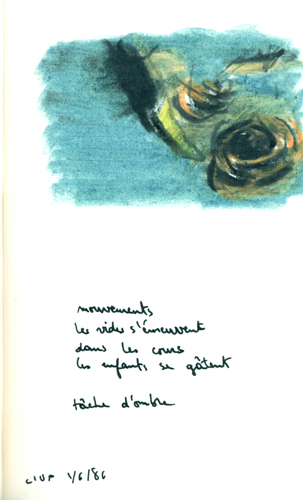 mouvements
les vides s'émeuvent
dans les cours
les enfants se gâtent
tâche d'ombre
CIUP 1/6/86